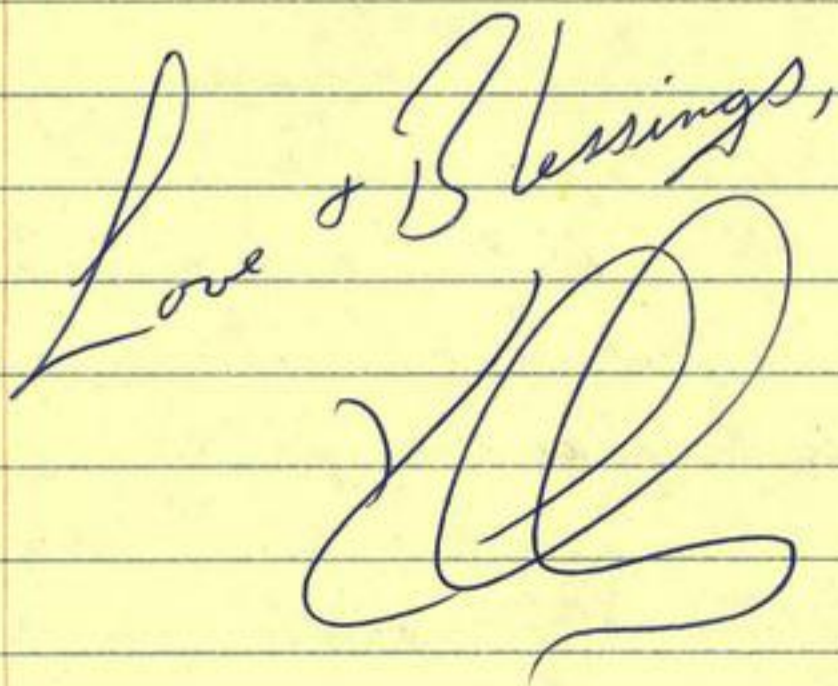 Love & Blessings,